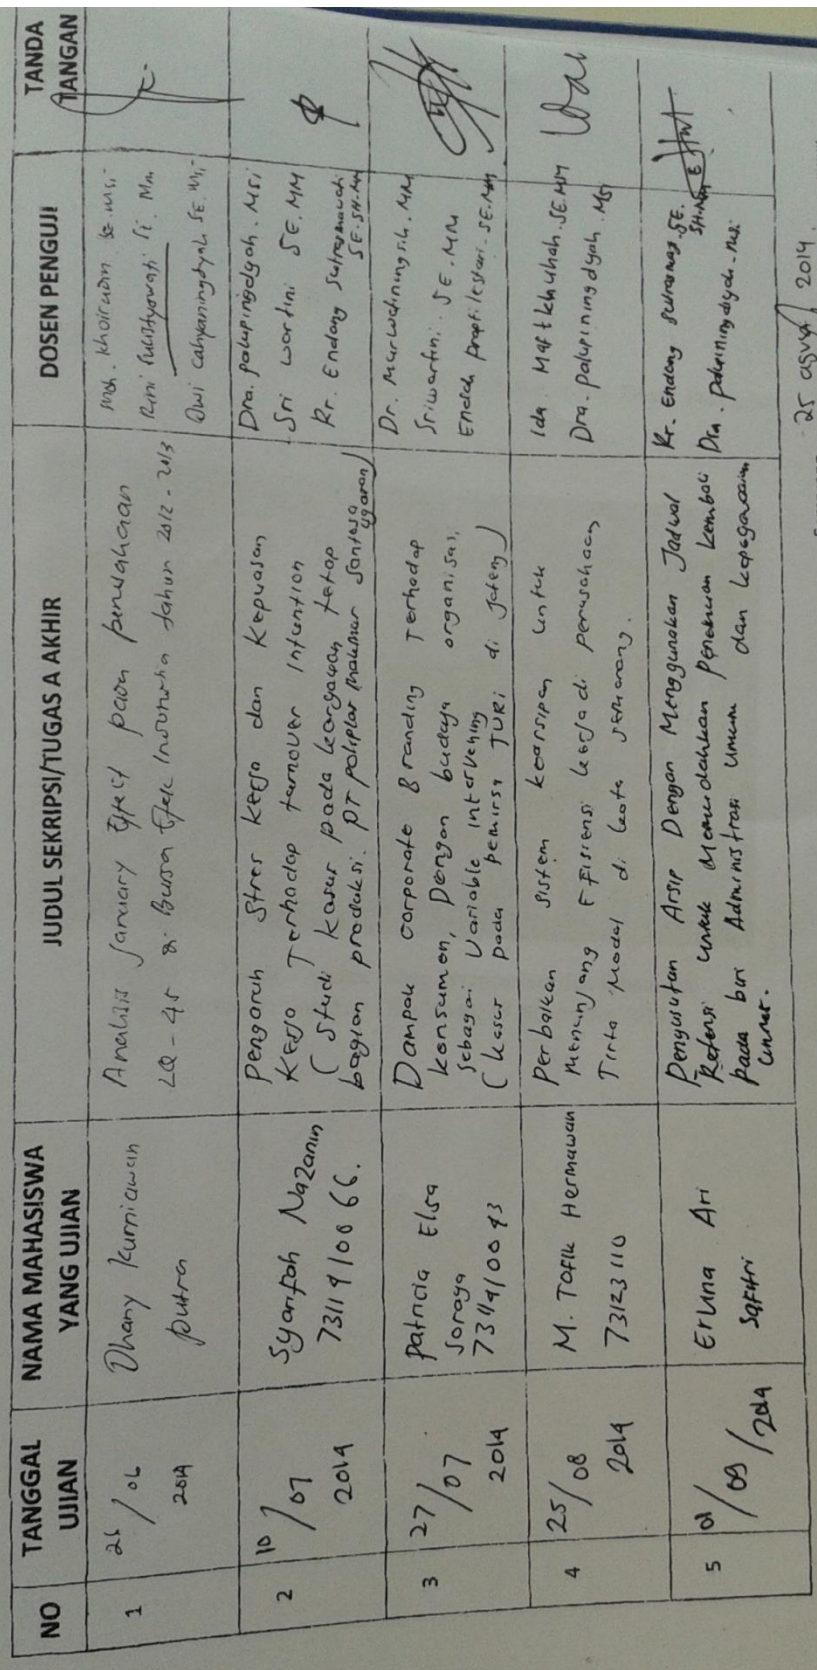 NO
TANGGAL
UJIAN
NAMA MAHASISWA
YANG UJIAN
JUDUL SEKRIPSI/TUGAS A AKHIR
DOSEN PENGUJI
TANDA
TANGAN
1
26/06
2014
Dhany Kurniawan
putra
Analisis January Effect pada perusahaan
LQ-45 di Bursa Efek Indonesia tahun 2012-2013
Moh. Khoirudin SE. MSi
Rini Sulistyowati SE. MM
Dwi Cahyaningdyah SE. MSi
2
10/07
2014
Syarifah Nazanin
7311910066.
Pengaruh Stres Kerja dan Kepuasan
Kerja Terhadap turnover Intention
( studi kasus pada karyawan tetap
bagian produksi. PT poliplas Makmur Santosa
ugaran)
Dra. palupingdyah. MSi
Sri wartini SE. MM
Rr. Endang
SE. SH. MM
3
27/07
2014
Patricia Elsa
Soraya
7311910093
Dampak corporate Branding Terhadap
konsumen, Dengan budaya organisasi,
sebagai Variable intervening
( kasus pada pemirsa TVRi di Jateng )
Dr. Murwatiningsih. MM
Sriwartini. SE. MM
Endah prapti lestari. SE. MM
4
25/08
2014
M. Tofik Hermawan
73123110
Perbaikan sistem kearsipan untuk
Menunjang Efisiensi kerja di perusahaan
Tirta Modal di kota semarang.
Ida Maftukhuhah. SE. MM
Dra. palupiningdyah. MSi
5
01/09/2014
Erlina Ari
Safitri
Penyusutan Arsip Dengan Menggunakan Jadwal
Retensi untuk Memudahkan penemuan kembali
pada biri Administrasi Umum dan kepegawaian
unnes.
Rr. Endang SE.
SH. MM
Dra. palupiningdyah. MSi
25 agust 2014.